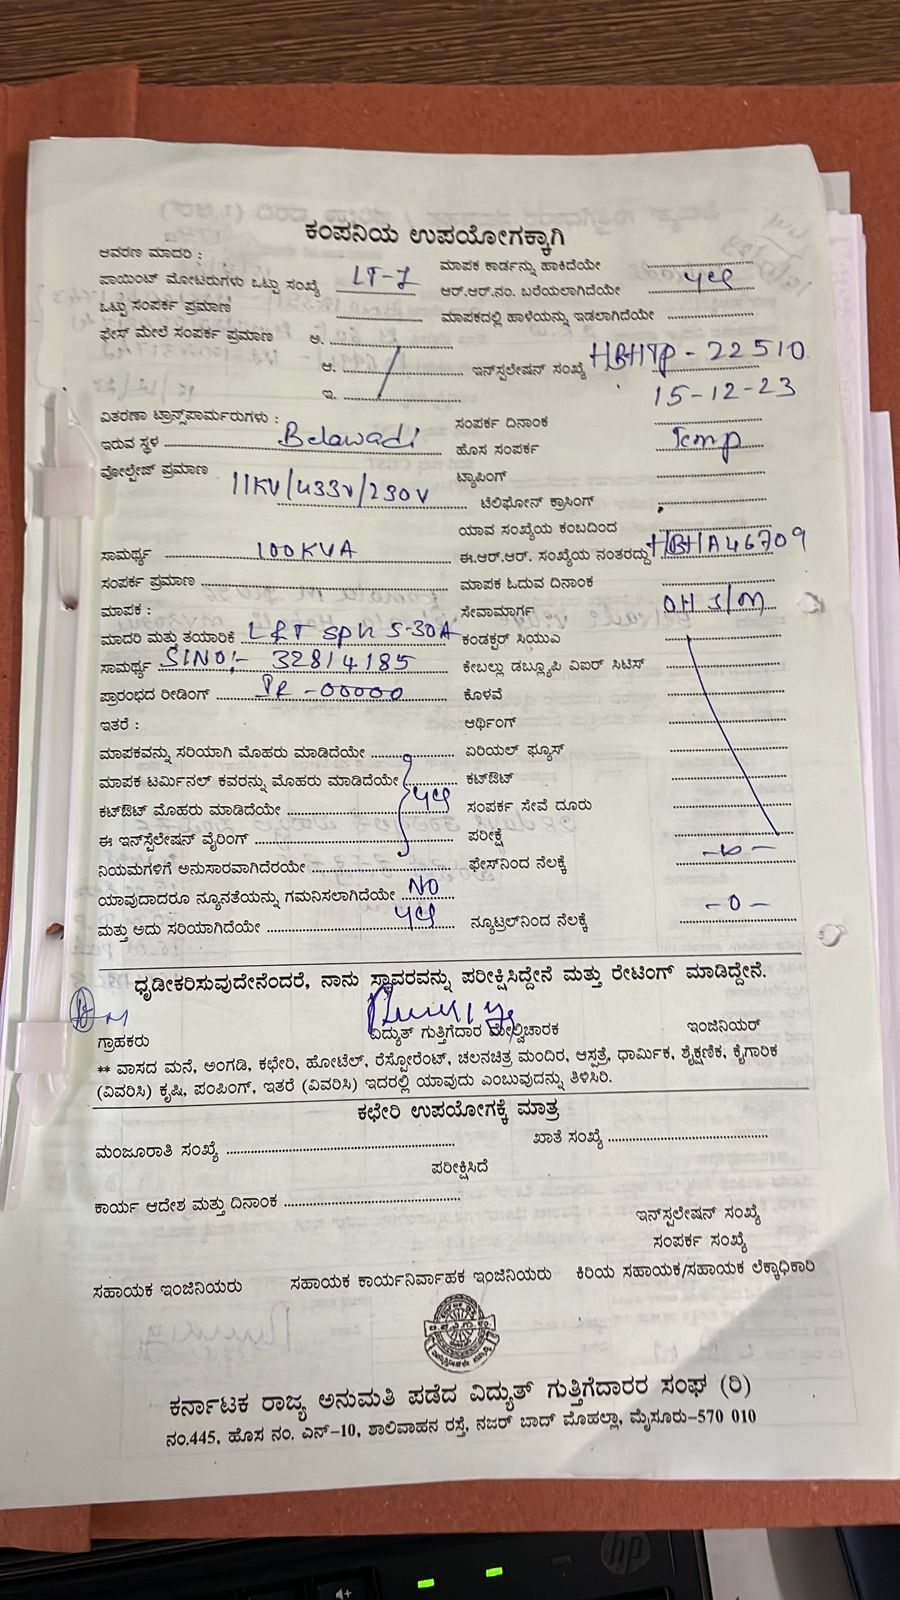 ಕಂಪನಿಯ ಉಪಯೋಗಕ್ಕಾಗಿ
ಆವರಣ ಮಾದರಿ : ಮಾಪಕ ಕಾರ್ಡನ್ನು ಹಾಕಿದೆಯೇ
ಪಾಯಿಂಟ್ ಮೋಟರುಗಳು ಒಟ್ಟು ಸಂಖ್ಯೆ LT-7 ಆರ್.ಆರ್.ನಂ. ಬರೆಯಲಾಗಿದೆಯೇ yes
ಒಟ್ಟು ಸಂಪರ್ಕ ಪ್ರಮಾಣ ಮಾಪಕದಲ್ಲಿ ಹಾಳೆಯನ್ನು ಇಡಲಾಗಿದೆಯೇ
ಫೇಸ್ ಮೇಲೆ ಸಂಪರ್ಕ ಪ್ರಮಾಣ ಅ.
ಆ. ಇನ್‌ಸ್ಪಲೇಷನ್ ಸಂಖ್ಯೆ HBHTP-22510
ಇ. 15-12-23
ವಿತರಣಾ ಟ್ರಾನ್ಸ್‌ಪಾರ್ಮರುಗಳು : ಸಂಪರ್ಕ ದಿನಾಂಕ
ಇರುವ ಸ್ಥಳ Belawadi ಹೊಸ ಸಂಪರ್ಕ Temp
ವೋಲ್ಟೇಜ್ ಪ್ರಮಾಣ 11KV/433V/230V ಟ್ಯಾಪಿಂಗ್
ಟೆಲಿಫೋನ್ ಕ್ರಾಸಿಂಗ್
ಯಾವ ಸಂಖ್ಯೆಯ ಕಂಬದಿಂದ
ಸಾಮರ್ಥ್ಯ 100KVA ಈ.ಆರ್.ಆರ್. ಸಂಖ್ಯೆಯ ನಂತರದ್ದು HBHA46709
ಸಂಪರ್ಕ ಪ್ರಮಾಣ ಮಾಪಕ ಓದುವ ದಿನಾಂಕ
ಮಾಪಕ : ಸೇವಾಮಾರ್ಗ OH S/M
ಮಾದರಿ ಮತ್ತು ತಯಾರಿಕೆ L&T SPH 5-30A ಕಂಡಕ್ಟರ್ ಸಿಯುಎ
ಸಾಮರ್ಥ್ಯ SlNO:- 32814185 ಕೇಬಲ್ಲು ಡಬ್ಲ್ಯೂಪಿ ಎಐಆರ್ ಸಿಟಿಸ್
ಪ್ರಾರಂಭದ ರೀಡಿಂಗ್ IR-00000 ಕೊಳವೆ
ಇತರೆ : ಆರ್ಥಿಂಗ್
ಮಾಪಕವನ್ನು ಸರಿಯಾಗಿ ಮೊಹರು ಮಾಡಿದೆಯೇ ಏರಿಯಲ್ ಫ್ಯೂಸ್
ಮಾಪಕ ಟರ್ಮಿನಲ್ ಕವರನ್ನು ಮೊಹರು ಮಾಡಿದೆಯೇ yes ಕಟ್‌ಔಟ್
ಕಟ್‌ಔಟ್ ಮೊಹರು ಮಾಡಿದೆಯೇ ಸಂಪರ್ಕ ಸೇವೆ ದೂರು
ಈ ಇನ್‌ಸ್ಪೆಲೇಷನ್ ವೈರಿಂಗ್ ಪರೀಕ್ಷೆ
ನಿಯಮಗಳಿಗೆ ಅನುಸಾರವಾಗಿದೆರಯೇ ಫೇಸ್‌ನಿಂದ ನೆಲಕ್ಕೆ
ಯಾವುದಾದರೂ ನ್ಯೂನತೆಯನ್ನು ಗಮನಿಸಲಾಗಿದೆಯೇ NO
ಮತ್ತು ಅದು ಸರಿಯಾಗಿದೆಯೇ yes ನ್ಯೂಟ್ರಲ್‌ನಿಂದ ನೆಲಕ್ಕೆ -0-
ಧೃಡೀಕರಿಸುವುದೇನೆಂದರೆ, ನಾನು ಸ್ಥಾವರವನ್ನು ಪರೀಕ್ಷಿಸಿದ್ದೇನೆ ಮತ್ತು ರೇಟಿಂಗ್ ಮಾಡಿದ್ದೇನೆ.
ಗ್ರಾಹಕರು ವಿದ್ಯುತ್ ಗುತ್ತಿಗೆದಾರ ಮೇಲ್ವಿಚಾರಕ ಇಂಜಿನಿಯರ್
** ವಾಸದ ಮನೆ, ಅಂಗಡಿ, ಕಛೇರಿ, ಹೋಟೆಲ್, ರೆಸ್ಟೋರೆಂಟ್, ಚಲನಚಿತ್ರ ಮಂದಿರ, ಆಸ್ಪತ್ರೆ, ಧಾರ್ಮಿಕ, ಶೈಕ್ಷಣಿಕ, ಕೈಗಾರಿಕ
(ವಿವರಿಸಿ) ಕೃಷಿ, ಪಂಪಿಂಗ್, ಇತರೆ (ವಿವರಿಸಿ) ಇದರಲ್ಲಿ ಯಾವುದು ಎಂಬುವುದನ್ನು ತಿಳಿಸಿರಿ.
ಕಛೇರಿ ಉಪಯೋಗಕ್ಕೆ ಮಾತ್ರ
ಮಂಜೂರಾತಿ ಸಂಖ್ಯೆ ಖಾತೆ ಸಂಖ್ಯೆ
ಪರೀಕ್ಷಿಸಿದೆ
ಕಾರ್ಯ ಆದೇಶ ಮತ್ತು ದಿನಾಂಕ
ಇನ್‌ಸ್ಪಲೇಷನ್ ಸಂಖ್ಯೆ
ಸಂಪರ್ಕ ಸಂಖ್ಯೆ
ಸಹಾಯಕ ಇಂಜಿನಿಯರು ಸಹಾಯಕ ಕಾರ್ಯನಿರ್ವಾಹಕ ಇಂಜಿನಿಯರು ಕಿರಿಯ ಸಹಾಯಕ/ಸಹಾಯಕ ಲೆಕ್ಕಾಧಿಕಾರಿ
ಕರ್ನಾಟಕ ರಾಜ್ಯ ಅನುಮತಿ ಪಡೆದ ವಿದ್ಯುತ್ ಗುತ್ತಿಗೆದಾರರ ಸಂಘ (ರಿ)
ನಂ.445, ಹೊಸ ನಂ. ಎನ್-10, ಶಾಲಿವಾಹನ ರಸ್ತೆ, ನಜರ್ ಬಾದ್ ಮೊಹಲ್ಲಾ, ಮೈಸೂರು-570 010
hp